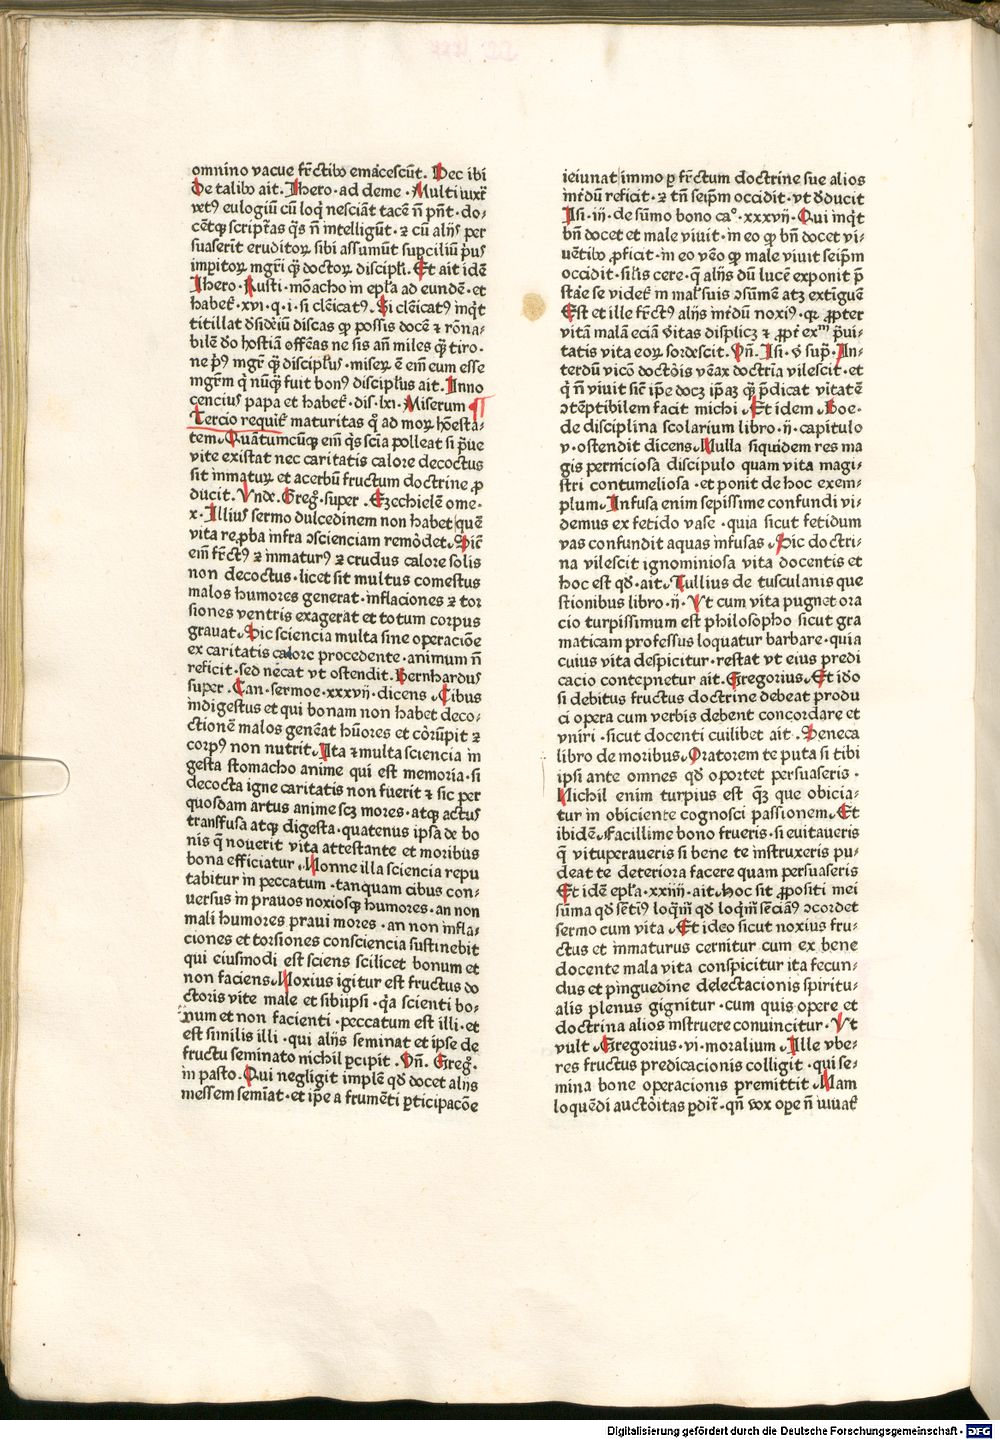 omnino vacue fr̄ctibꝰ emācescūt. Hec ibi
De talibꝰ ait. Jhero · ad deme · Multi iuxꝭ
vetꝰ eulogiū cū loqͥ nesciāt tacē n̄ pn̄t · do⸗
cētqꝫ scriptᷓas qͥs n̄ intelligūt · ⁊ cū alijs per
suaserīt eruditoꝝ sibi assumūt supciliū pͥus
imꝑitoꝝ mgr̄i qᷓꝫ doctoꝝ discipl̓i. Et ait idē
Jhero · Rusti · mōacho in epl̓a ad eundē · et
habetᷣ · xvi · q · i · si cleͥicatꝰ. Si cleͥicatꝰ īnqͥt
titillat dͥsideͥiū discas qꝫ possis docē ⁊ rōna⸗
bilē do hostiā offēas ne sis an̄ miles qᷓꝫ tiro ·
ne pͥꝰ mgr̄ qᷓꝫ discipl̓us · miseꝝ ē em̄ eum esse
mgr̄m qͥ nūqᷓꝫ fuit bonꝰ discipl̓us ait. Inno
cencius papa et habetᷣ · dis · lxi · Miserum ¶
Tercio requiritᷣ maturitas qͥ ad moꝝ hōestā⸗
tem. Quātumcūqꝫ em̄ qͥs scīa polleat si pͥue
vite existat nec caritatis calore decoctus
sit immatuꝝ et acerbū fructum doctrine ꝓ
ducit. Vnde. Greg̓. super . Ezechielē ome ·
x · Illius sermo dulcedinem non habet quē
vita reꝓba infra ↄscienciam remōdet. Sic
em̄ fr̄ctꝰ ⁊ immaturꝰ ⁊ crudus calore solis
non decoctus · licet sit multus comestus
malos humores generat · inflaciones ⁊ tor
siones ventris exagerat et totum corpus
grauat. Sic sciencia multa sine operaciōe
ex caritatis calore procedente · animum n̄
reficit · sed necat vt ostendit. Bernhardus
super . Can · sermoe · xxxvij · dicens. Cibus
indigestus et qui bonam non habet deco⸗
ctionē malos geneͣt hūores et corͥūpit ⁊
corpꝰ non nutrit. Ita ⁊ multa sciencia in
gesta stomacho anime qui est memoria · si
decocta igne caritatis non fuerit ⁊ sic per
quosdam artus anime scꝫ mores · atqꝫ actus
transfusa atqꝫ digesta · quatenus ipsa de bo
nis q̄ nouerit vita attestante et moribus
bona efficiatur. Nonne illa sciencia repu
tabitur in peccatum · tanquam cibus con⸗
uersus in prauos noxiosqꝫ humores · an non
mali humores praui mores · an non infla⸗
ciones et torsiones consciencia sustinebit
qui eiusmodi est sciens scilicet bonum et
non faciens. Noxius igitur est fructus do
ctoris vite male et sibiipsi · qͥa scienti bo⸗
num et non facienti · peccatum est illi · et
est similis illi · qui alijs seminat et ipse de
fructu seminato nichil ꝑcipit. Vn̄. Greg̓.
in pasto. Qui negligit implē qd̓ docet alijs
messem semīat · et ip̄e a frumēti ꝑticipacōe
ieiunat immo ꝑ fr̄ctum doctrine sue alios
int̓dū reficit · ⁊ tn̄ seip̄m occidit · vt dducit
Isi · iij · de sūmo bono caᵒ · xxxvij · Qui inqͥt
bn̄ docet et male viuit · in eo qꝫ bn̄ docet vi⸗
uētibꝰ ꝓficit · in eo veͦo qꝫ male viuit seip̄m
occidit · sil̓is cere · q̄ alijs dū lucē exponit p̄
sta̓e se videtᷣ in mal̓ suis ↄsūme atꝫ extīguē
Est et ille fr̄ctꝰ alijs int̓dū noxiꝰ · qꝛ ꝓpter
vitā malā eciā vͥitas displicꝫ ⁊ ꝓpt̓ exᵐ pͣui⸗
tatis vita eoꝝ sordescit. Vn̄. Isi · vͥ supͣ. In⸗
terdū vicͦō doctoͥis veͣax doctrīa vilescit · et
qͥ n̄ viuit sic̄ ip̄e docꝫ ip̄aꝫ qᷓꝫ p̄dicat vͥitatē
ↄtēptibilem facit michi. Et idem. Boe ·
de disciplina scolarium libro · ij · capitulo
v · ostendit dicens. Nulla siquidem res ma
gis perniciosa discipulo quam vita magi⸗
stri contumeliosa · et ponit de hoc exem⸗
plum. Infusa enim sepissime confundi vi⸗
demus ex fetido vase · quia sicut fetidum
vas confundit aquas infusas. Sic doctri⸗
na vilescit ignominiosa vita docentis et
hoc est qd̓ · ait. Tullius de tusculanis que
stionibus libro · ij · Vt cum vita pugnet ora
cio turpissimum est philosopho sicut gra
maticam professus loquatur barbare · quia
cuius vita despicitur · restat vt eius predi
cacio contepnetur ait. Gregorius. Et ido
si debitus fructus doctrine debeat produ
ci opera cum verbis debent concordare et
vniri · sicut docenti cuilibet ait. Seneca
libro de moribus. Oratorem te puta si tibi
ipsi ante omnes qd̓ oportet persuaseris ·
Nichil enim turpius est qᷓꝫ que obicia⸗
tur in obiciente cognosci passionem. Et
ibidē. Facillime bono frueris · si euitaueris
q̄ vituperaueris si bene te instruxeris pu⸗
deat te deteriora facere quam persuaseris
Et idē epl̓a · xxiiij · ait. hoc sit ꝓpositi mei
sūma qd̓ sētiꝰ loqͣm̄ qd̓ loqͣm̄ sēciāꝰ ↄcordet
sermo cum vita. Et ideo sicut noxius fru⸗
ctus et immaturus cernitur cum ex bene
docente mala vita conspicitur ita fecun⸗
dus et pinguedine delectacionis spiritu⸗
alis plenus gignitur · cum quis opere et
doctrina alios instruere conuincitur · Vt
vult. Gregorius · vi · moralium. Ille vbe⸗
res fructus predicacionis colligit · qui se⸗
mina bone operacionis premittit. Nam
loquēdi auctoͥitas ꝑdit̓ · qn̄ vox oꝑe n̄ iuuatᷣ
Digitalisierung gefördert durch die Deutsche Forschungsgemeinschaft - DFG